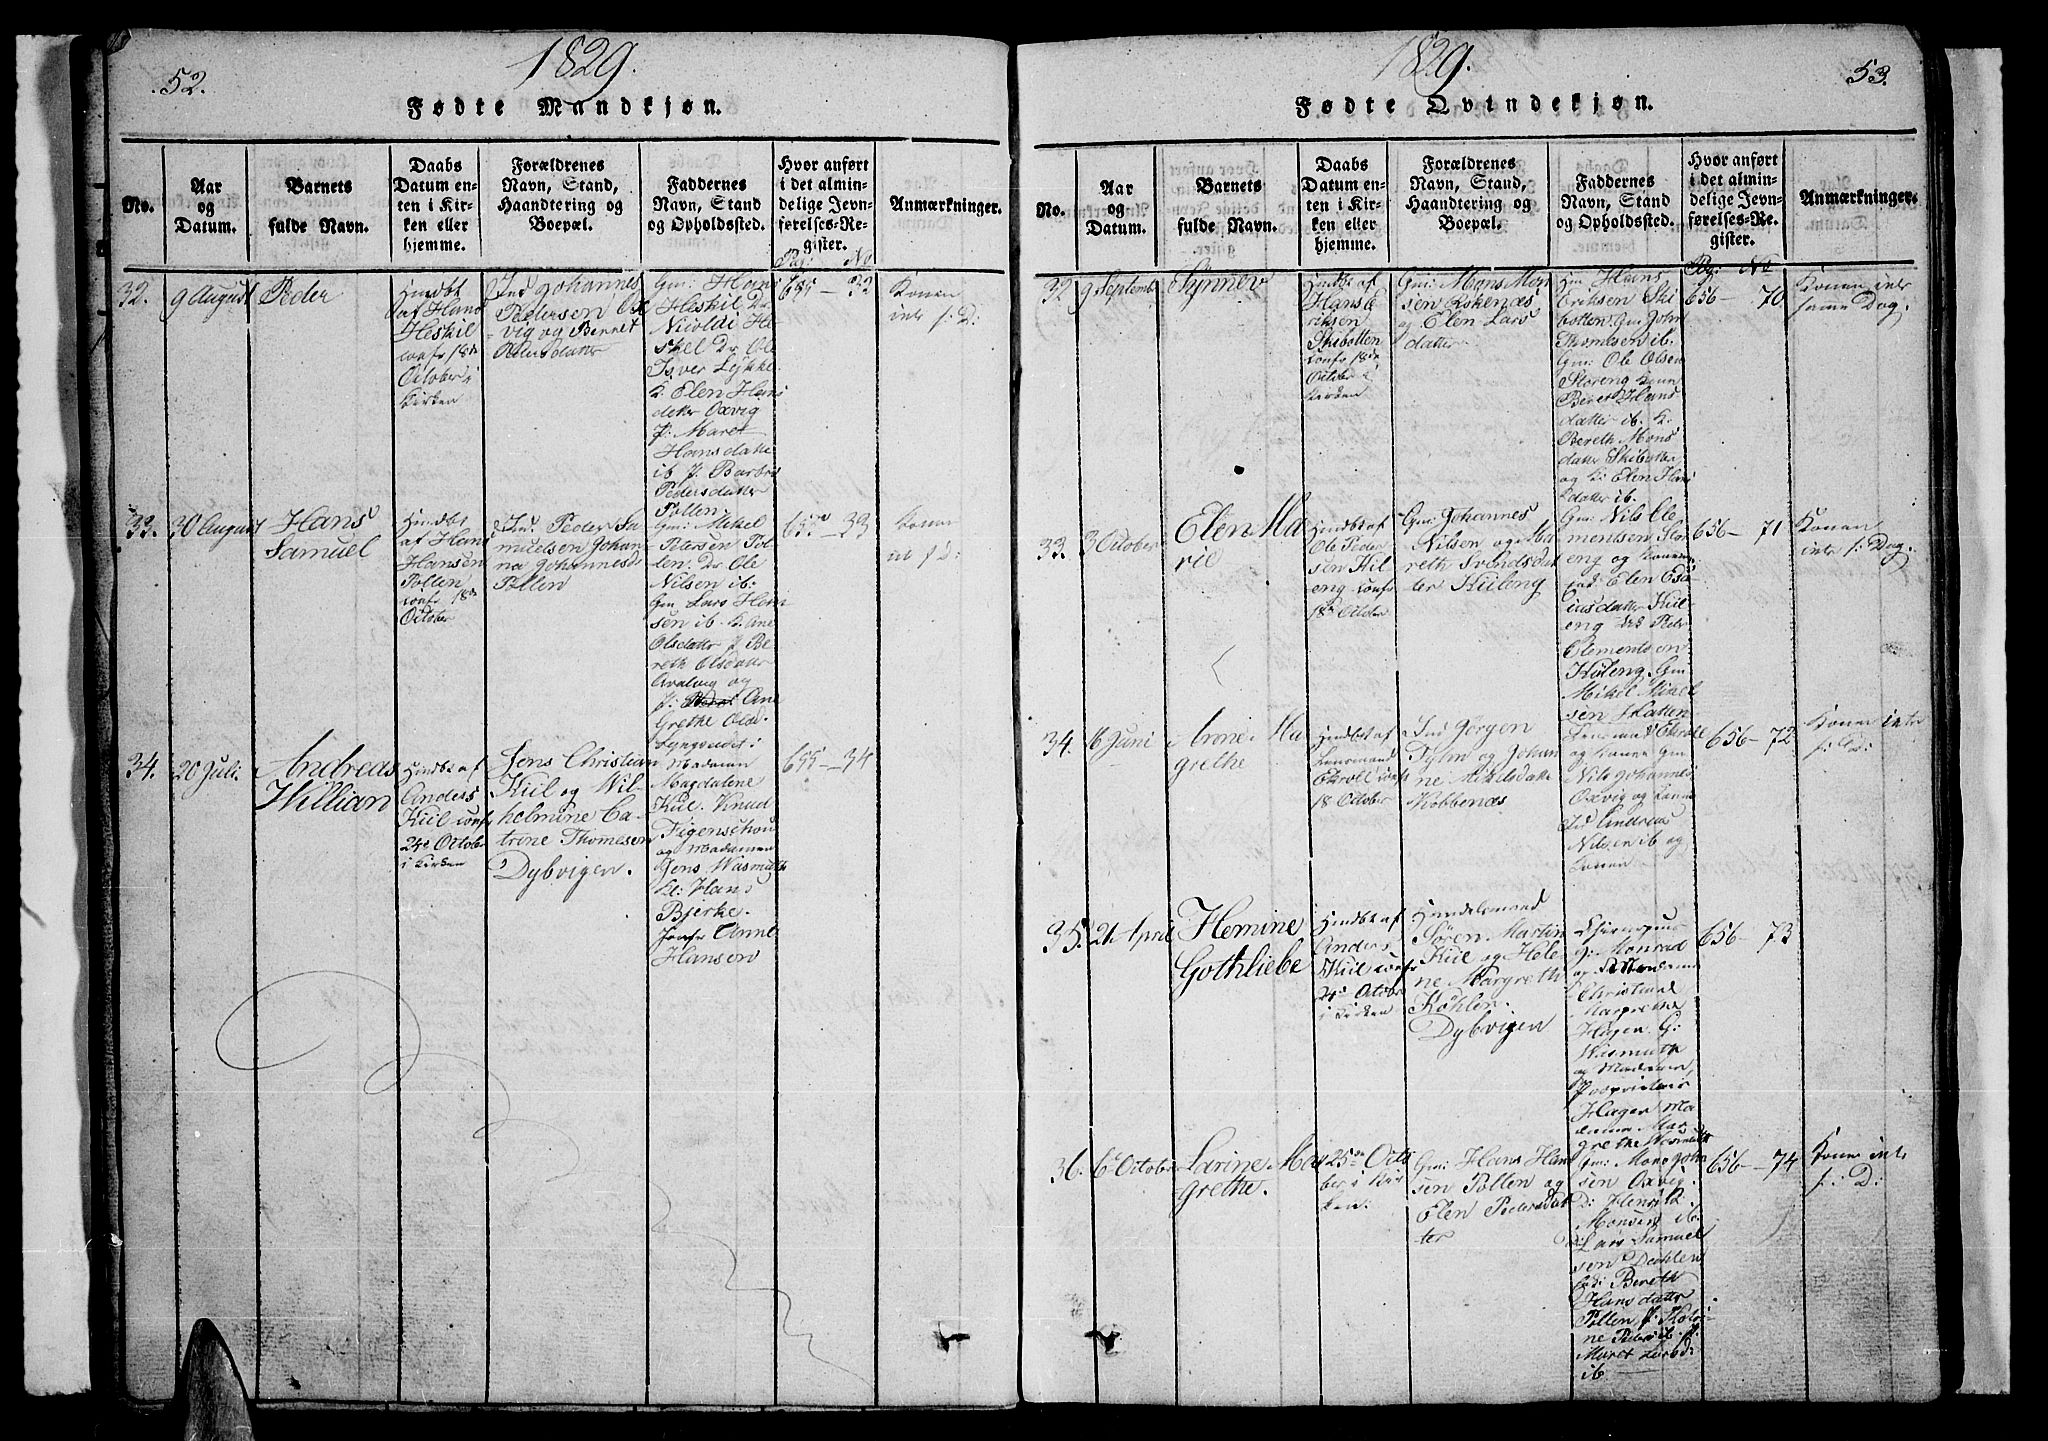 52.
1829.
Fødte Mandkjøn.
No.
Aar
og
Datum.
Barnets
fulde Navn.
Daabs
Datum en-
ten i Kir-
ken eller
hjemme.
Forældrenes
Navn, Stand,
Haandtering og
Boepæl.
Faddernes
Navn, Stand
og Opholdssted.
Hvor anført
i det almin-
delige Jevn-
førelses-Re-
gister.
Pag: No
Anmærkninger.
32.
9 August
Peder
Hmdbt
af Hans
Heskil
conf 18de
October i
Kirken
Johannes
Pedersen Ox
vig og Berret
datter
Gm: Hans
Heskil Dr
Nicoldi He
skel Dr Ole
Isver Lykke
K. Elen Hans
datter Oxvig
P: Maret
Hansdatte
ib P. Barbro
Pedersdatter
Pollen
655 - 32
Konen
intr f: D:
33.
30 August
Hans
Samuel
Hmdbt
af Hans
Hansen
Pollen
conf 18de
October
Ind. Peder Sa
muelsen Johan
na Johannesd
Pollen
Gm: Mikel
Petersen Pol
len: Dr Ole
Nilsen ib:
Gm Lars Hen
sen ib K. Ane
Olsdatter P Be
reth Olsdatter
og
P: Ane
Grethe
Lyngseidet i
655 - 33
Konen
f D:
34.
20 Juli
Andreas
Willian
Hmdbt af
Anders
Kiil conf
24de October
i Kirken
Jens Christian
Kiil og Wil-
helmine Ca-
trine Thomesen
Dybvigen.
Madamm
Magdalene
Kiil. Knud
Figenschou
og Madamm
Jens Wasmuth
Hans
Bjerke.
Jomfr Anne
Hansen
655 - 34
1829.
53.
Fødte Qvindekjøn.
No.
Aar
og
Datum.
Barnets
fulde Navn.
Daabs
Datum en-
ten i Kir-
ken eller
hjemme.
Forældrenes
Navn, Stand,
Haandtering og
Boepæl.
Faddernes
Navn, Stand
og Opholdssted.
Hvor anført
i det almin-
delige Jevn-
førelses-Re-
gister.
Pag: No
Anmærkninger.
32
9 Septemb
Synnev
Hmdbt af
Hans E
riksen
Skibotten
conf 18de
October i
Kirken
Gm: Mons Mon
sen
og Elen Lars
datter
Gm Hans
Eriksen Ski
botten. Gm: John
Thomesen ib.
Gm: Ole Olsen
Storeng Konen
Beret Hans
datter ib. K.
Bereth Mons
datter Skibotten
og K: Elen Hans
datter ib.
656 - 70
Konen intr
same Dag.
33.
3 October
Elen Ma
rie
Hmdbt af
Ole Peder
sen Kil
eng conf
18de October
Gm: Johannes
Nilsen og Ma
reth Svendsdat
ter Kileng
Gm: Nils Cle
mentsen Stor
eng og Konen
Elen Esa
iasdatter Kiil
eng Peder
Clementsen
Gm
Mikel Mikel
sen
656 - 71
Konen
intr f: Dag.
34.
16 Juni
Arone Ma
grethe
Hmdbt af
Lensmand
Ekroll conf
18 October
Ind Jørgen
og Johan
ne Mikelsdatte
Kobbenæs
Lensmand Ekroll
og Konen Gm
Nils Johannes
Oxvig og Konen
Ind Andreas
Nilsen ib og
Konen
656 - 72
Konen intr
f: D:
35.
21 April
Hemine
Gothliebe
Hmdbt af
Anders
Kiil conf
24de October
i Kirken
Handelsmand
Søren Martin
Kiil og Hele
ne Margreth
Køhler.
Dybvigen
Konrad
og Madamm
Christiane
Margrethe
Hagen. G:
Wasmuth
og Madamm,
Proprietair
Hagen Ma
damm Mar
grethe Wasmuth
656 - 73
36.
6 October
Larine Mar
grethe.
25de Octo
ber i Kir
ken.
Gm: Hans Han
sen Pollen og
Elen Pedersdat
ter
Gm: Mons John
sen Oxvig.
D: Henrik
Monsen ib.
Lars Samuel
sen
Bereth
Hansdatter
Pollen P:
ne ib P.
Maret Larsd:
ib
656 - 74
Konen intr
f: D: